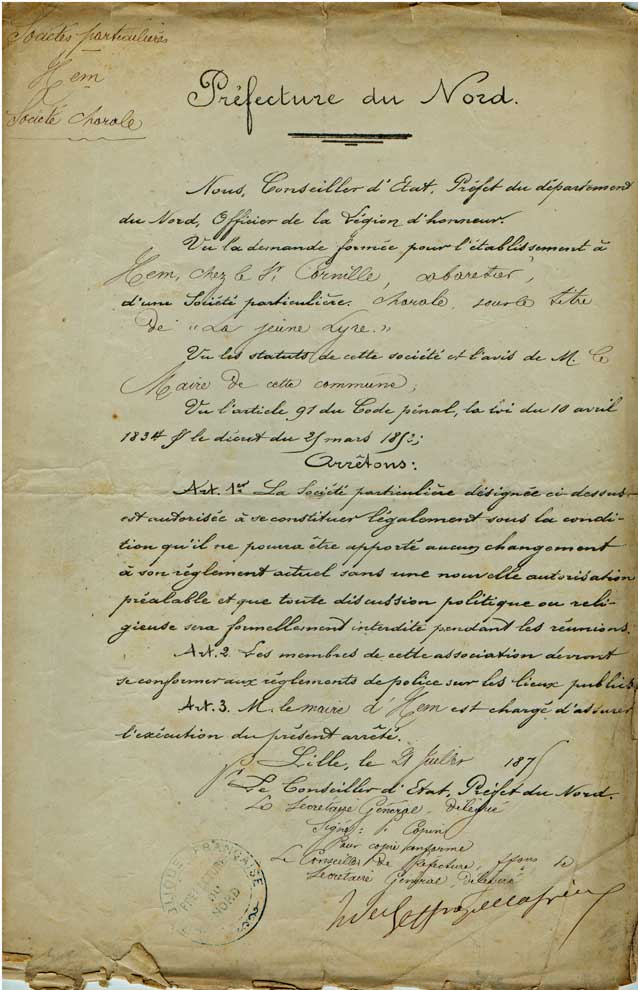 Sociétés particulières
Hem
Société chorale
Préfecture du Nord.
Nous, Conseiller d'Etat, Préfet du département
du Nord, Officier de la Légion d'honneur.
Vu la demande formée pour l'établissement à
Hem, chez le Sr Cornille, cabaretier,
d'une Société particulière. chorale, sous le titre
de "La jeune Lyre."
Vu les statuts de cette société et l'avis de M. le
Maire de cette commune;
Vu l'article 291 du Code pénal, la loi du 10 avril
1834 & le décret du 25 mars 1852;
Arrêtons:
Art. 1er La Société particulière désignée ci-dessus
est autorisée à se constituer légalement sous la condi-
tion qu'il ne pourra être apporté aucun changement
à son règlement actuel sans une nouvelle autorisation
préalable et que toute discussion politique ou reli-
gieuse sera formellement interdite pendant les réunions.
Art. 2. Les membres de cette association devront
se conformer aux règlements de police sur les lieux publics.
Art. 3. M. le maire d'Hem est chargé d'assurer
l'exécution du présent arrêté.
Lille, le 21 Juillet 1875
Pr Le Conseiller d'Etat, Préfet du Nord.
Le Secrétaire Général Délégué
Signé: Copin
Pour copie conforme
Le Conseiller de Préfecture, le
Secrétaire Général Délégué
RÉPUBLIQUE FRANÇAISE
PRÉFECTURE
DU
NORD